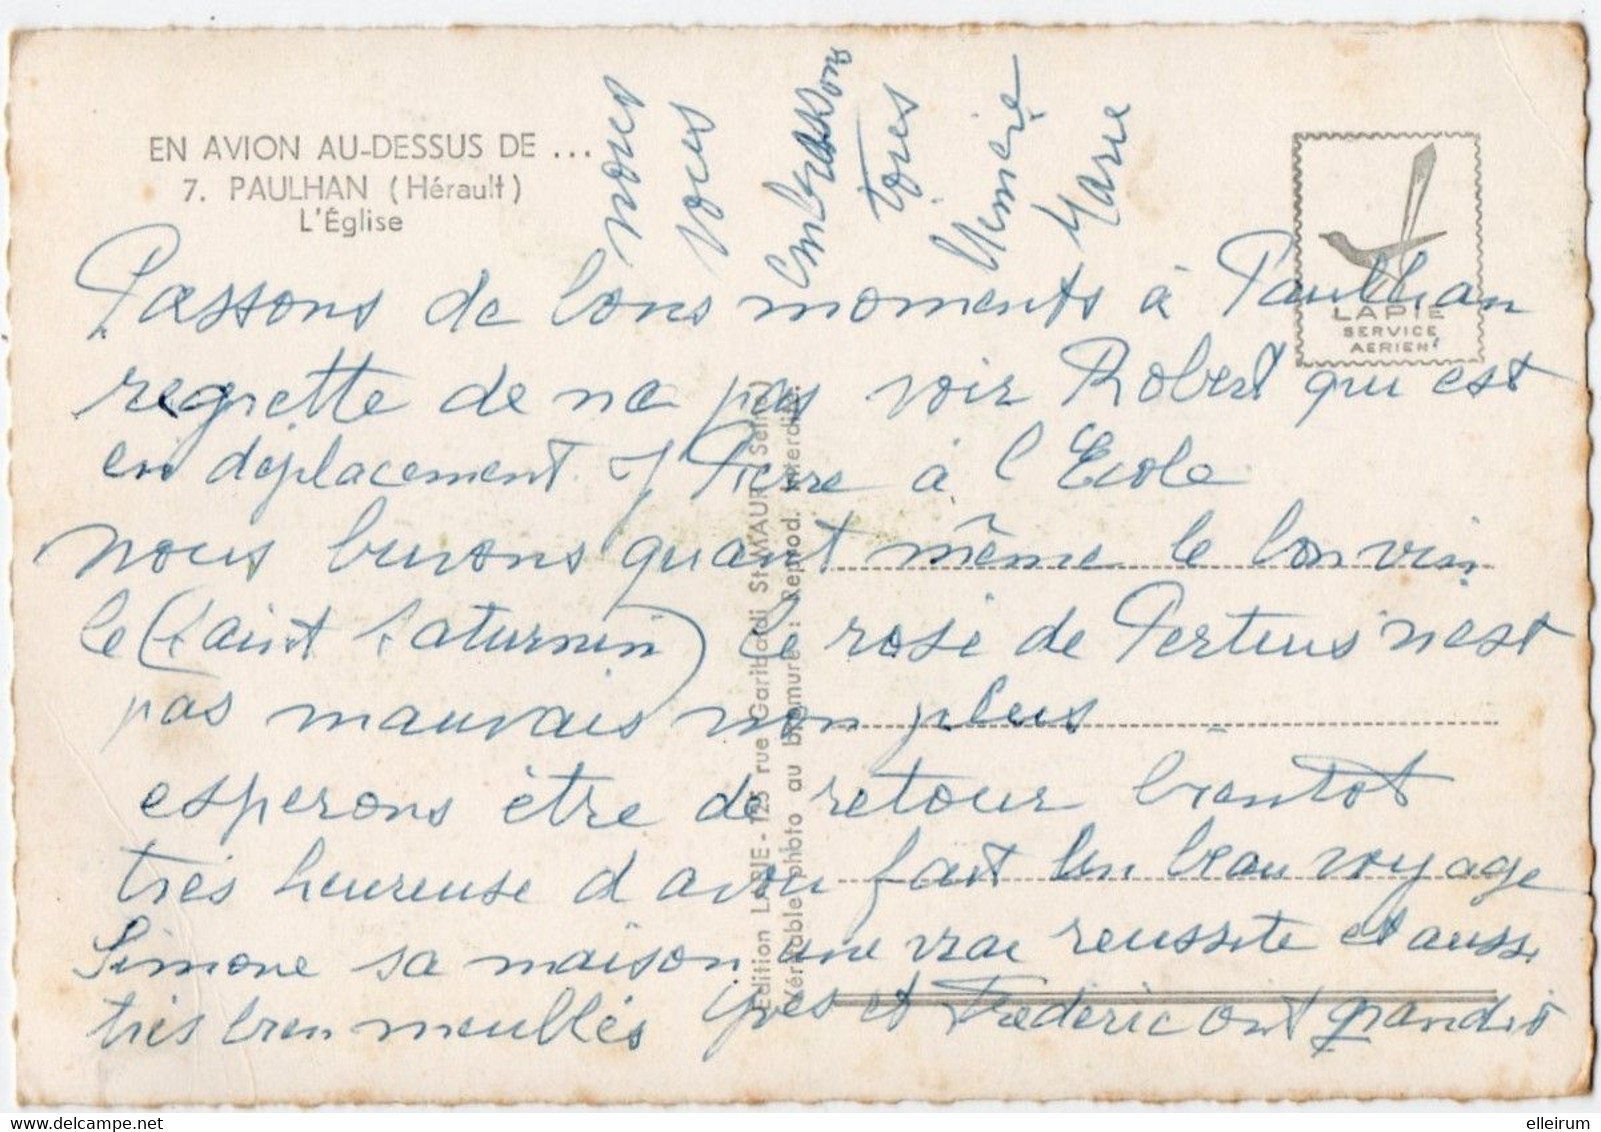 EN AVION AU-DESSUS DE ...
7. PAULHAN (Hérault)
L'Église
LAPIE
SERVICE
AERIEN
Passons de bons moments à Paulhan
regrette de ne pas voir Robert qui est
en déplacement. Pierre à l'Ecole
nous buvons quant même le bon vin
le (Saint Saturnin) le rosé de Pertuis n'est
pas mauvais non plus
esperons être de retour bientot
très heureuse d avoir fait un beau voyage
Simone sa maison une vrai reussite et aussi
très bien meublés Yves et Frédéric ont grandit
nous
vous
embrassons
tous
Mémère
Marie
Edition LAPIE - 123 rue Garibaldi St-MAUR (Seine)
Véritable photo au bromure : Reprod. interdite.
elleirum